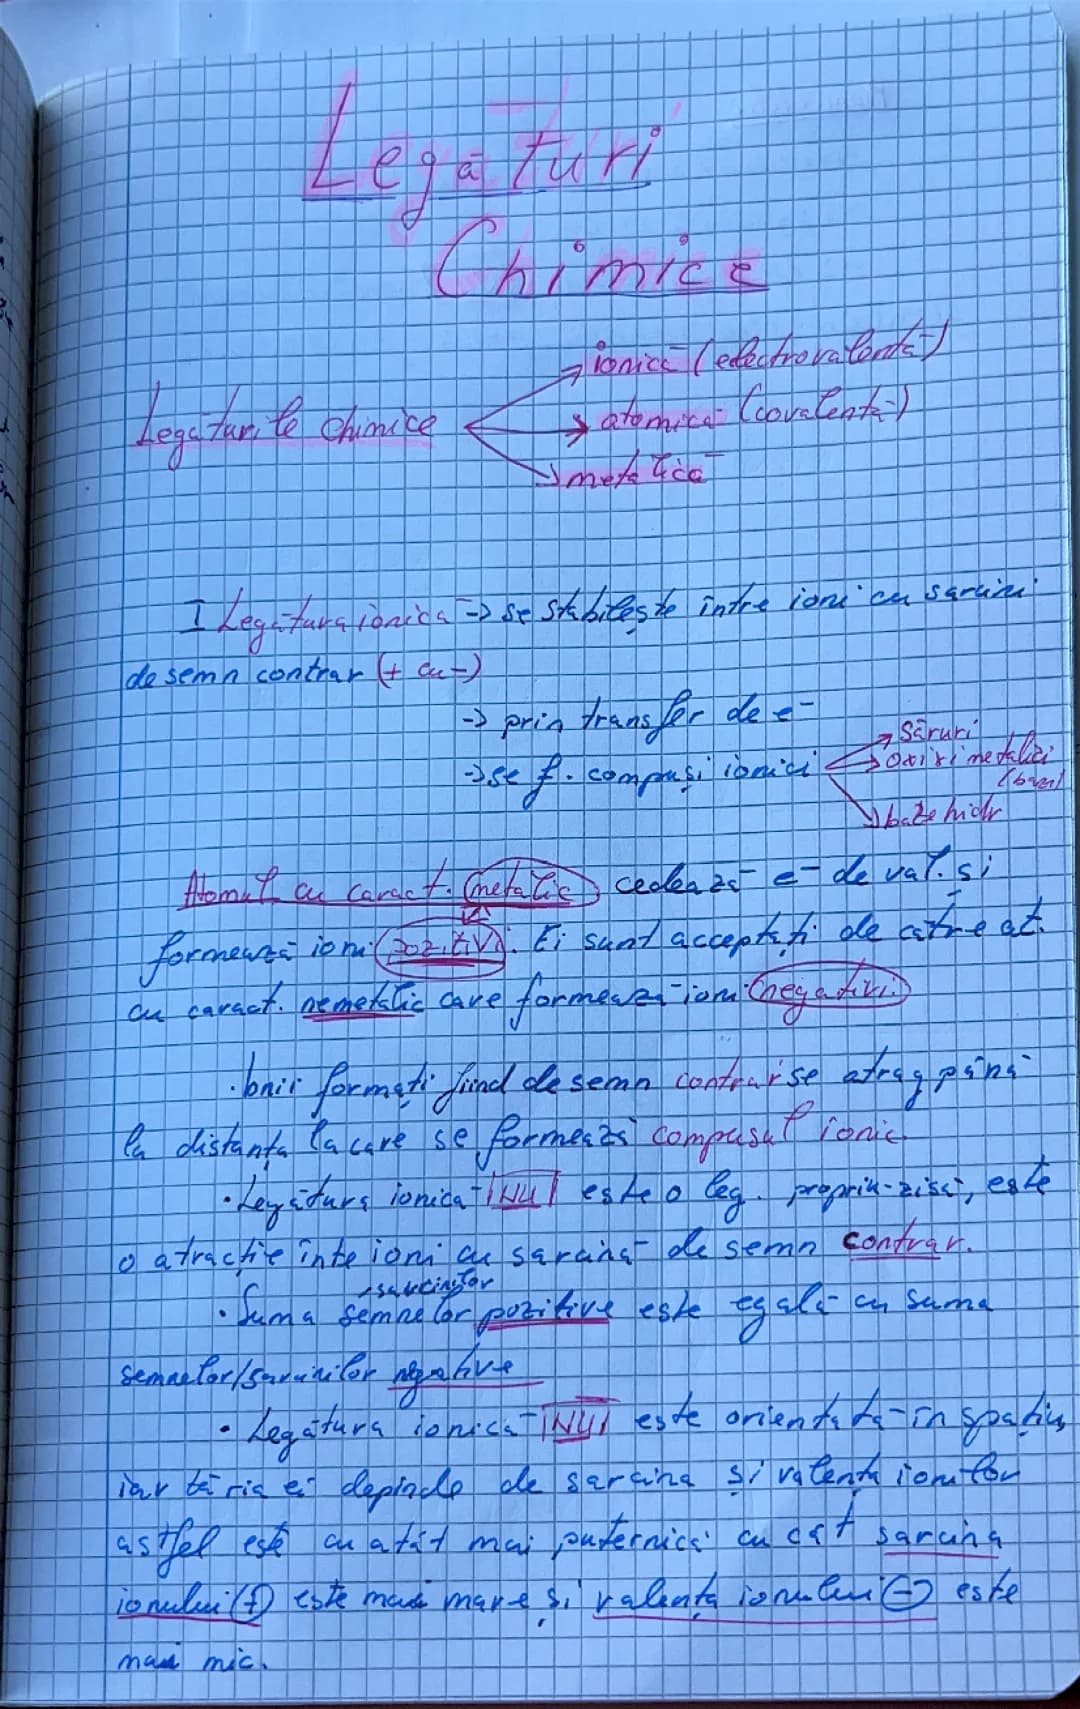 Legături
Chimice
ionică (electrovalentă)
Legăturile chimice
atomică (covalentă)
metalică
I Legătura ionică -> se stabilește între ioni cu sarcini
de semn contrar (+ cu -)
-> prin transfer de e-
-> se f. compuși ionici
săruri
oxizi metalici
(bazici)
baze hidr
Atomul cu caract. metalic cedează e- de val. și
formează ioni pozitivi. Ei sunt acceptați de către at.
cu caract. nemetalic care formează ioni negativi.
. Ionii formați fiind de semn contrar se atrag până
la distanța la care se formează compusul ionic.
. Legătura ionică NU este o leg. propriu-zisă, este
o atracție inte ioni cu sarcină de semn contrar.
sarcinilor
. Suma semnelor pozitive este egală cu suma
semnelor/sarcinilor negative
. Legătura ionică NU este orientată în spațiu,
iar tăria ei depinde de sarcina și valența ionilor
astfel este cu atât mai puternică cu cât sarcina
ionului (+) este mai mare și valența ionului (-) este
mai mic.